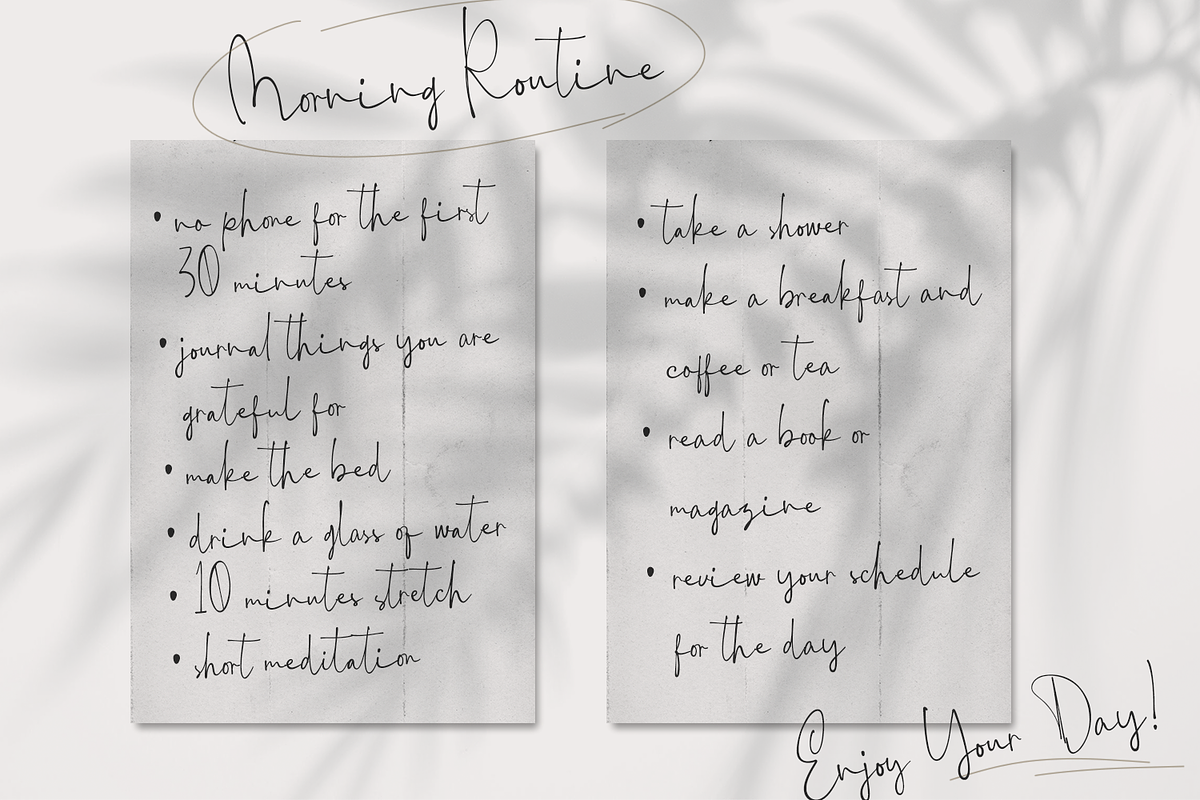 Morning Routine
• no phone for the first
30 minutes
• journal things you are
grateful for
• make the bed
• drink a glass of water
• 10 minutes stretch
• short meditation
• take a shower
• make a breakfast and
coffee or tea
• read a book or
magazine
• review your schedule
for the day
Enjoy Your Day!